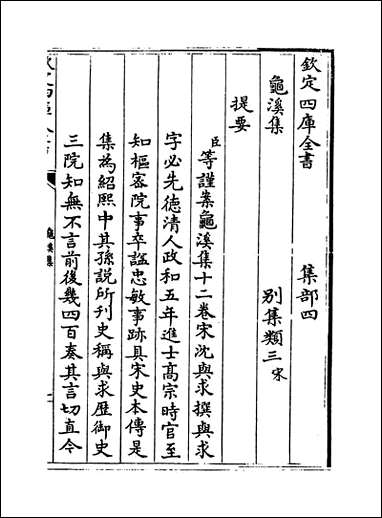 欽定四庫全書 集部四
龜溪集 別集類三 宋
提要
臣等謹案龜溪集十二卷宋沈與求撰與求
字必先德清人政和五年進士髙宗時官至
知樞密院事卒諡忠敏事跡具宋史本傳是
集為紹熙中其孫説所刊史稱與求歴御史
三院知無不言前後幾四百奏其言切直今
龜溪集